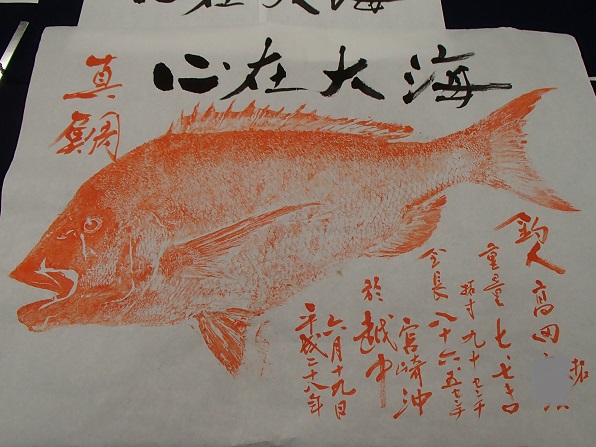 心在大海
真鯛
釣人 高田
拓
重量 七.七キロ
拓寸 九十センチ
全長 八十六.五センチ
宮崎沖
於 越中
六月十九日
平成二十八年